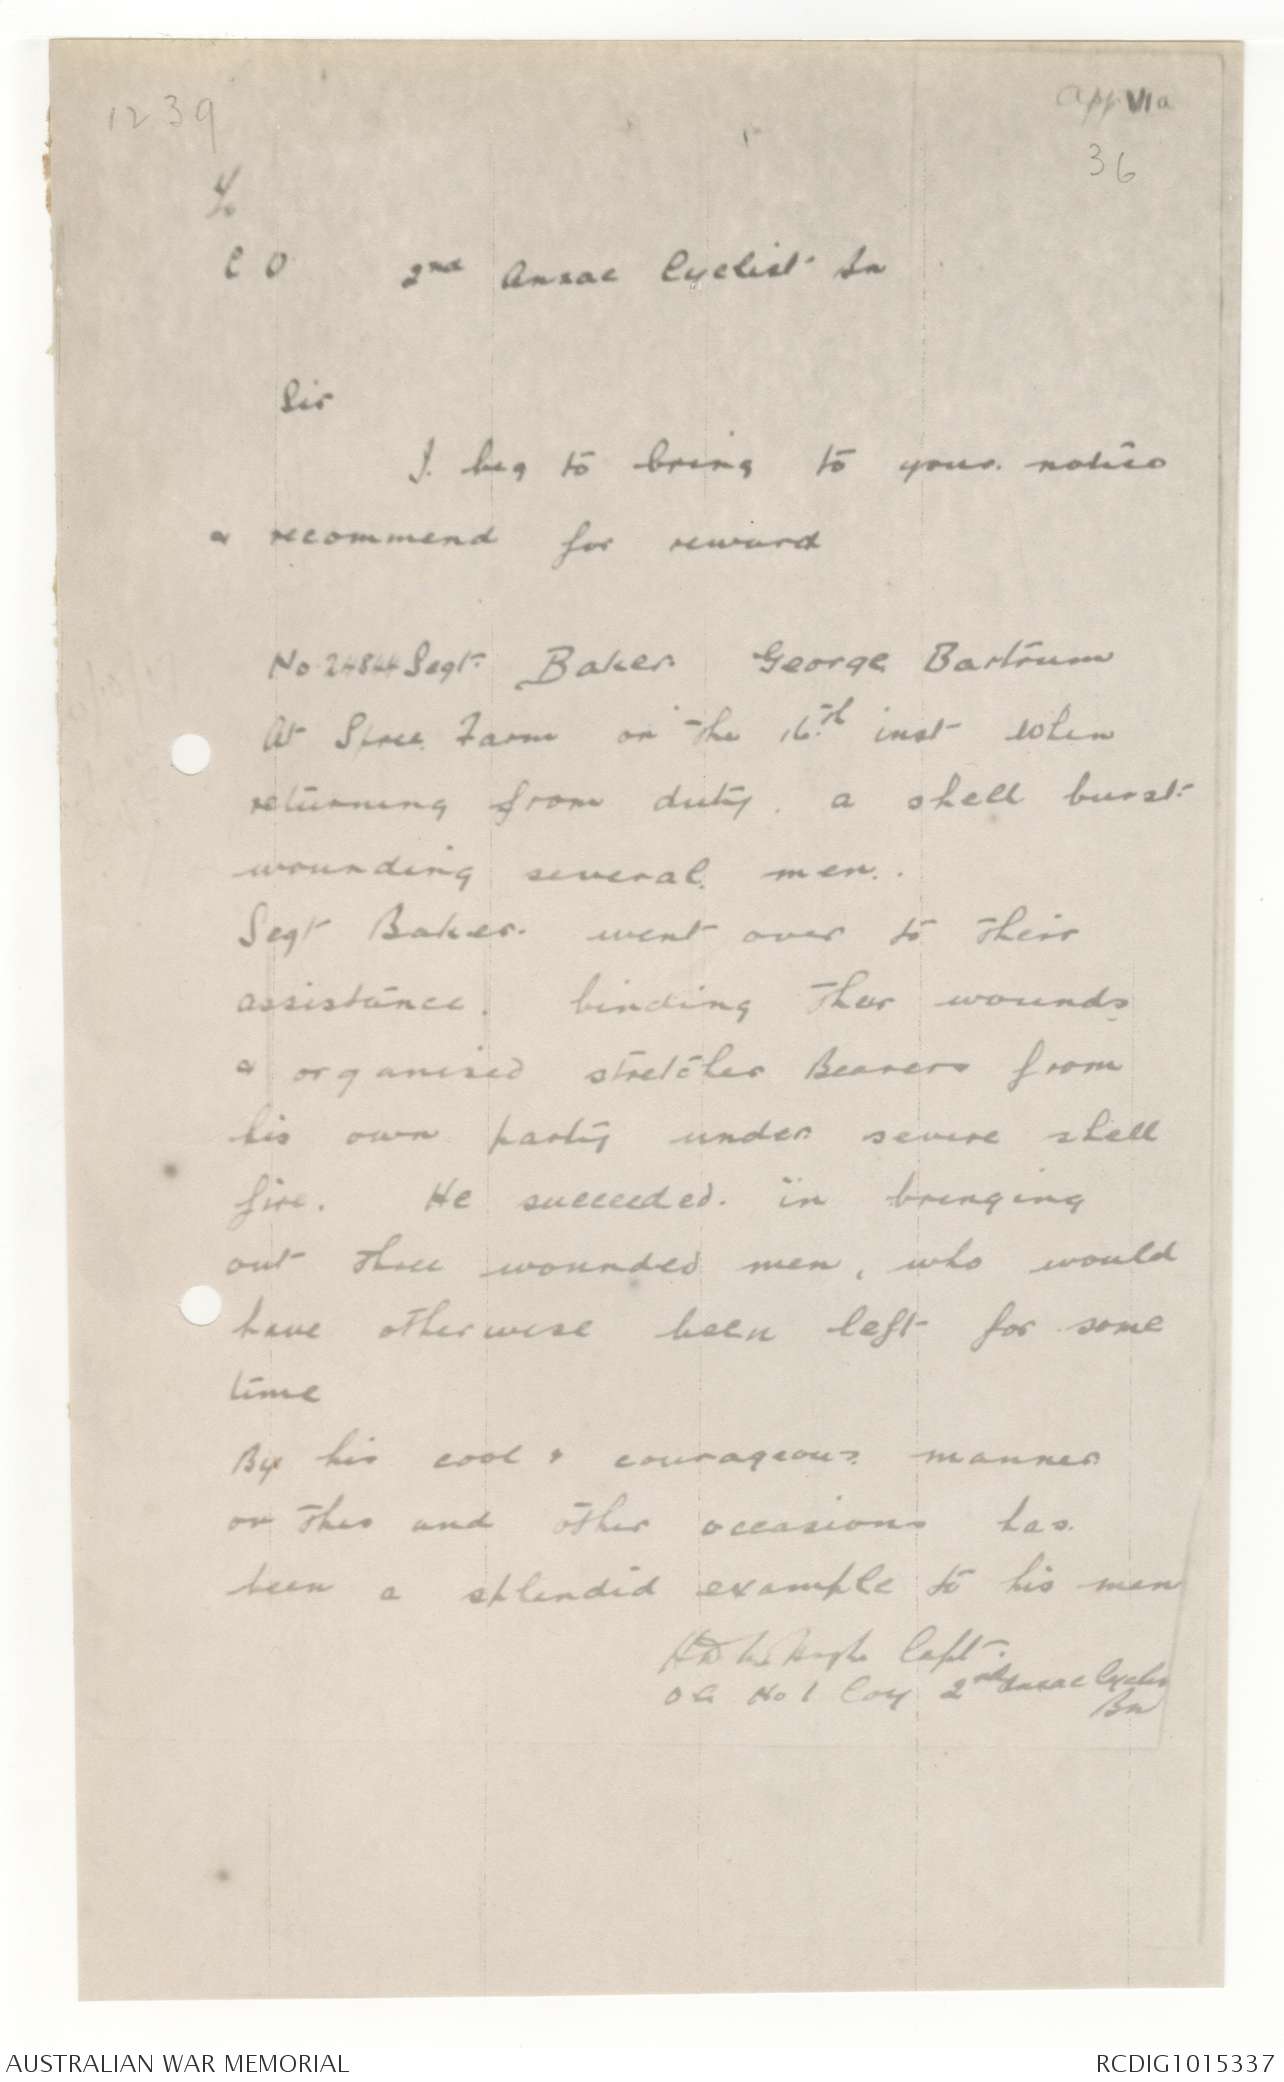 1239
App VIa
36
C O 2nd Anzac Cyclist Bn
Sir
I beg to bring to your notice
& recommend for reward
No 24844 Segt. Baker George Bartrum
At Spree Farm on the 16th inst When
returning from duty. a shell burst
wounding several men.
Segt Baker. went over to their
assistance. binding ther wounds
& organised stretcher Bearers from
his own party under severe shell
fire. He succeeded in bringing
out three wounded men, who would
have otherwise been left for some
time
By his cool & courageous manner
on this and other occasions has
been a splendid example to his men
Capt.
O C No 1 Coy 2nd Anzac Cyclist
Bn
AUSTRALIAN WAR MEMORIAL
RCDIG1015337